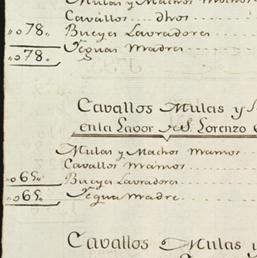 Mulas y Machos Mansos
Cavallos .... dhos
"078" Bueyes Lavradores
"078" Yeguas Madres
Cavallos Mulas y
en la Lavor de S. Lorenzo
Mulas y Machos Mansos
Cavallos Mansos
"065" Bueyes Lavradores
"065" Yegua Madre
Cavallos Mulas y